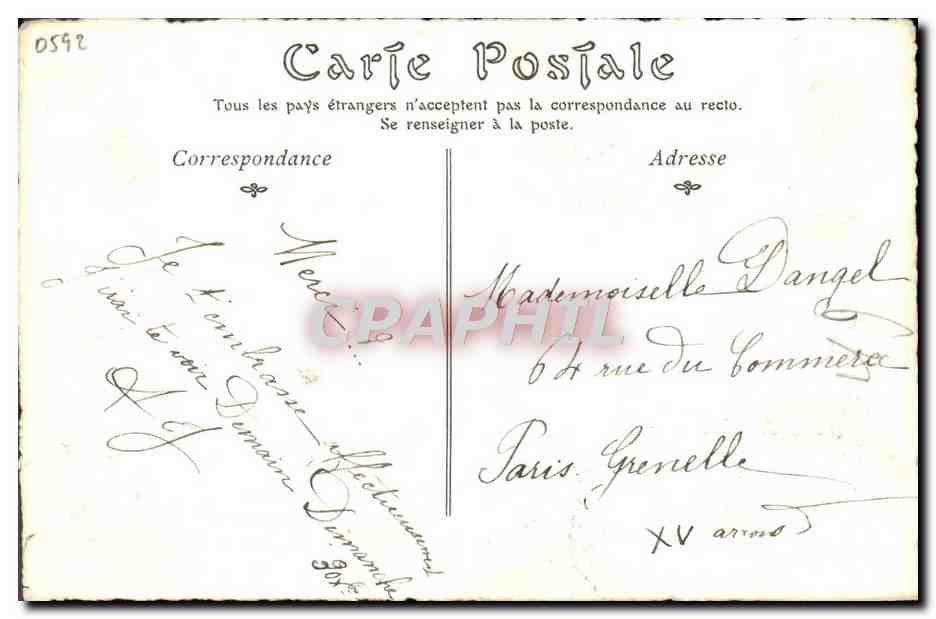 0592
Carte Postale
Tous les pays étrangers n'acceptent pas la correspondance au recto.
Se renseigner à la poste.
Correspondance
Adresse
Merci ...
Je t'embrasse affectueusement
J'irai te voir Demain Dimanche
A J
Mademoiselle Dangel
64 rue du Commerce
Paris-Grenelle
XV arrond
CPAPHIL